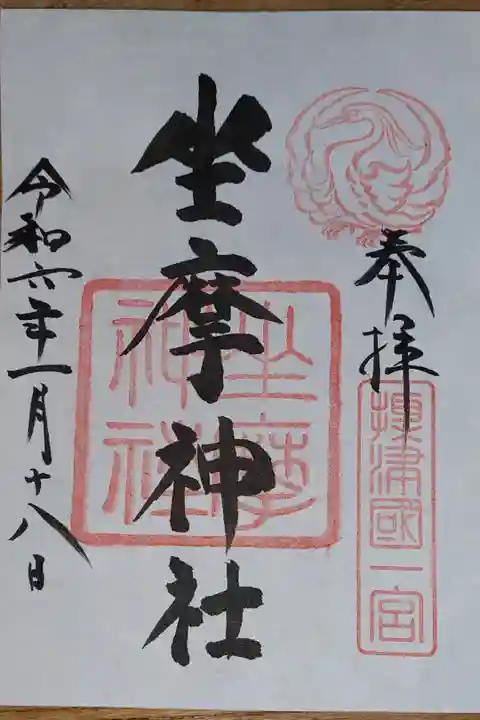 奉拝
摂津國一宮
坐摩神社
坐摩神社
令和六年一月十八日